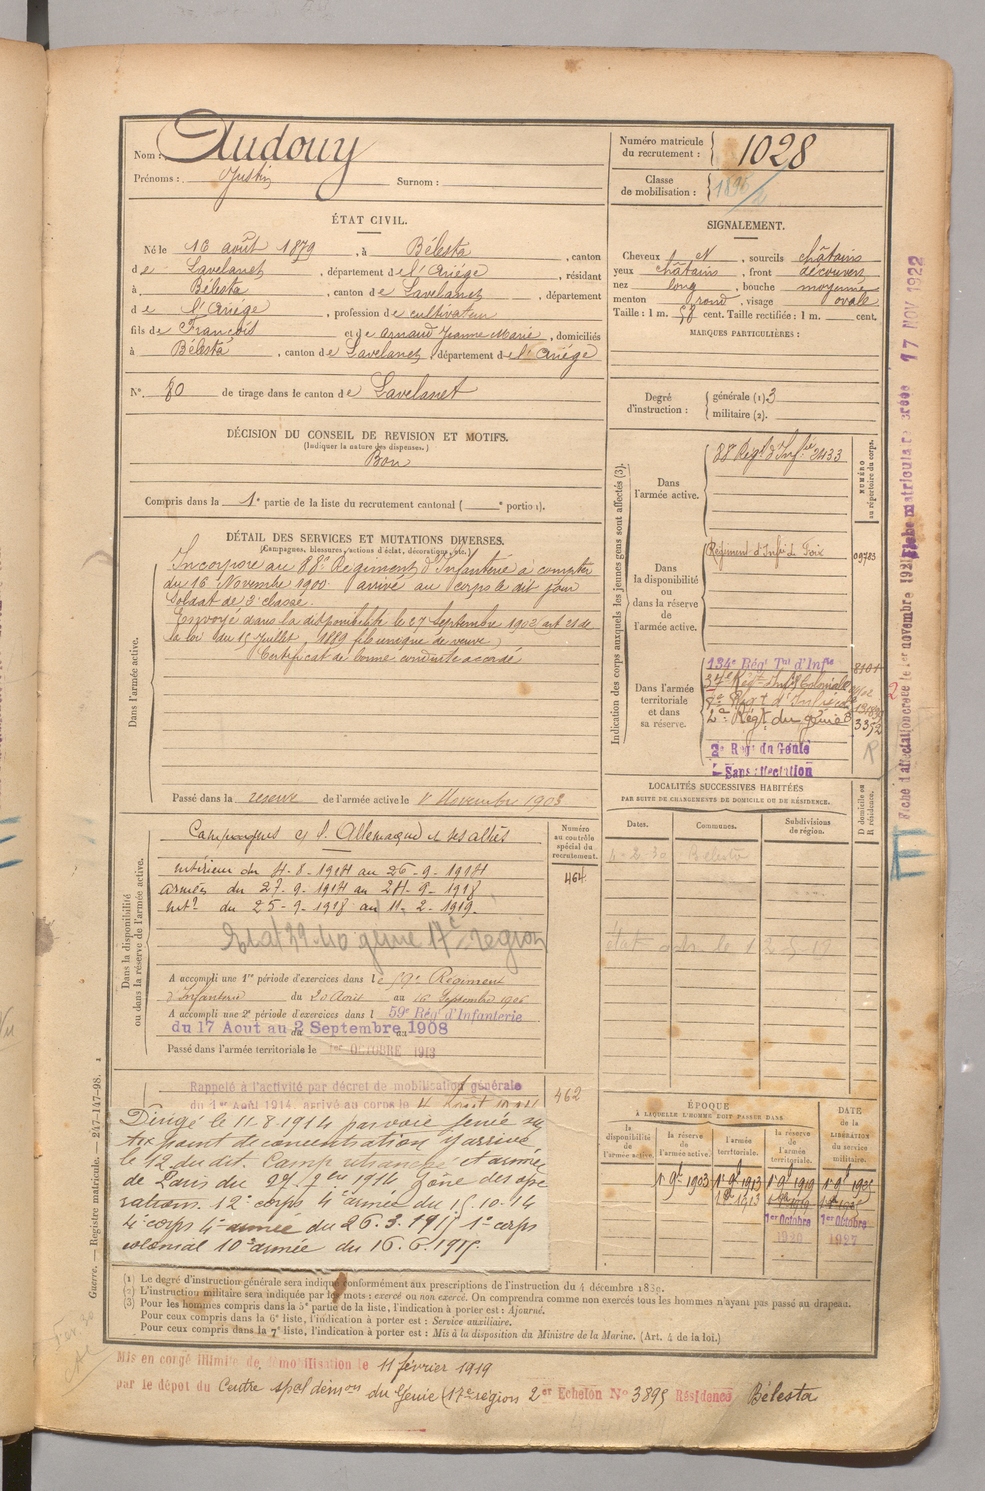 Nom : Audouy
Prénoms : Justin Surnom :
Numéro matricule du recrutement : 1028
Classe de mobilisation :
ÉTAT CIVIL.
Né le 16 août 1879, à Bélesta, canton
de Lavelanet, département de l'Ariége, résidant
à Bélesta, canton de Lavelanet, département
de l'Ariége, profession de cultivateur
fils de François et de Arnaud Jeanne Marie, domiciliés
à Bélesta, canton de Lavelanet, département de l'Ariége
N° 80 de tirage dans le canton de Lavelanet
SIGNALEMENT.
Cheveux N, sourcils châtains
yeux châtains, front découvert
nez long, bouche moyenne
menton rond, visage ovale
Taille : 1 m. 58 cent. Taille rectifiée : 1 m. cent.
MARQUES PARTICULIÈRES :
Degré d'instruction : générale (1) 3
militaire (2).
DÉCISION DU CONSEIL DE REVISION ET MOTIFS.
(Indiquer la nature des dispenses.)
Bon
Compris dans la 1e partie de la liste du recrutement cantonal ( e portion).
DÉTAIL DES SERVICES ET MUTATIONS DIVERSES.
(Campagnes, blessures, actions d'éclat, décorations, etc.)
Dans l'armée active.
Incorporé au 88e Régiment d'Infanterie à compter
du 16 Novembre 1900. arrivé au corps le dit jour
Soldat de 2e classe.
Envoyé dans la disponibilité le 27 Septembre 1902 (art 21 de
la loi du 15 Juillet 1889 fils unique de veuve)
Certificat de bonne conduite accordé
Passé dans la réserve de l'armée active le 1r Novembre 1903
Indication des corps auxquels les jeunes gens sont affectés (3).
NUMÉRO au répertoire du corps.
Dans l'armée active.
88e Régt d'Infie 3433
Dans la disponibilité ou dans la réserve de l'armée active.
Régiment d'Infie de Foix 09783
Dans l'armée territoriale et dans sa réserve.
134e Régt Tal d'Infie 8101
37e Régt Inf Coloniale
2e Régt du génie 3352
2e Régt du Génie
Sans affectation
R
LOCALITÉS SUCCESSIVES HABITÉES
PAR SUITE DE CHANGEMENTS DE DOMICILE OU DE RÉSIDENCE.
D domicile ou R résidence.
Dates. Communes. Subdivisions de région.
Bélesta
Dans la disponibilité ou dans la réserve de l'armée active.
Numéro au contrôle spécial du recrutement.
464
Campagnes c/ l'Allemagne et ses alliés
intérieur du 4-8-1914 au 26-9-1914
armées du 27-9-1914 au 24-9-1918
intr du 25-9-1918 au 11-2-1919.
génie 17e région
A accompli une 1re période d'exercices dans le 59e Régiment
d'Infanterie du 20 Août au 16 Septembre 1906
A accompli une 2e période d'exercices dans l 59e Rég d'Infanterie
du 17 Aout au 2 Septembre 1908
Passé dans l'armée territoriale le 1er OCTOBRE 1913
Rappelé à l'activité par décret de mobilisation générale
du 1er Août 1914, arrivé au corps le 4 Aout 1914
462
Dirigé le 11-8-1914 par voie ferrée sur
point de concentration y arrivé
le 12 du dit. Camp retranché et armée
de Paris du 27. 1914 Zône des opé
rations. 12e corps 4e armée du 15.10.14
4e corps 4e armée du 26.3.1915 1e corps
colonial 10e armée du 16.6.1915.
ÉPOQUE
À LAQUELLE L'HOMME DOIT PASSER DANS
DATE de la LIBÉRATION du service militaire.
la disponibilité de l'armée active. la réserve de l'armée active. l'armée territoriale. la réserve de l'armée territoriale.
1er 9bre 1903 1er 9bre 1913 1er 9bre 1919 1er 9bre 1925
1er Octobre 1920 1er Octobre 1927
(1) Le degré d'instruction générale sera indiqué conformément aux prescriptions de l'instruction du 4 décembre 1889.
(2) L'instruction militaire sera indiquée par les mots : exercé ou non exercé. On comprendra comme non exercés tous les hommes n'ayant pas passé au drapeau.
(3) Pour les hommes compris dans la 5e partie de la liste, l'indication à porter est : Ajourné.
Pour ceux compris dans la 6e liste, l'indication à porter est : Service auxiliaire.
Pour ceux compris dans la 7e liste, l'indication à porter est : Mis à la disposition du Ministre de la Marine. (Art. 4 de la loi.)
Mis en congé illimité de démobilisation le 11 février 1919
par le dépot du Centre spal démon du Génie (17e région 2er Echelon No 3895 Résidence Bélesta
Guerre. — Registre matricule. — 247-147-98. 1
17 NOV 1922